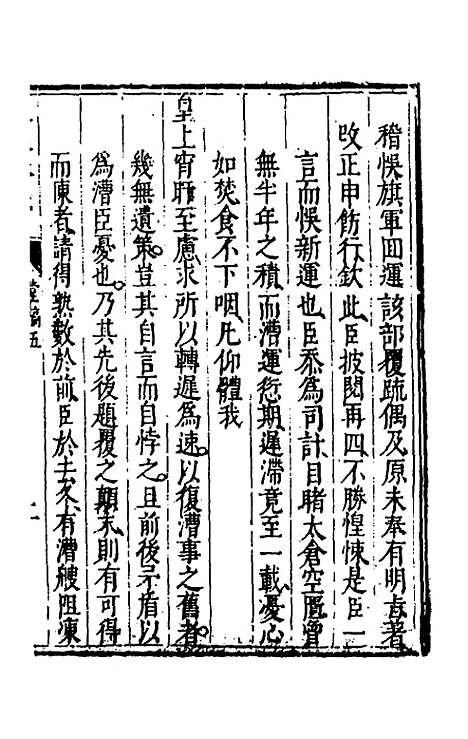 稽悞旗軍回運該部覆疏偶及原未奉有明㫖著
改正申飭行欽此臣披閱再四不勝惶悚是臣一
言而悞新運也臣忝爲司計目睹太倉空匱曾
無半年之積而漕運愆期遲滯竟至一載憂心
如焚食不下咽凡仰體我
皇上宵旰至慮求所以轉遲爲速以復漕事之舊者
幾無遺策豈其自言而自悖之且前後矛盾以
爲漕臣憂也乃其先後題覆之顛末則有可得
而陳者請得熟數於前臣於去冬有漕艘阻凍
堂稿五